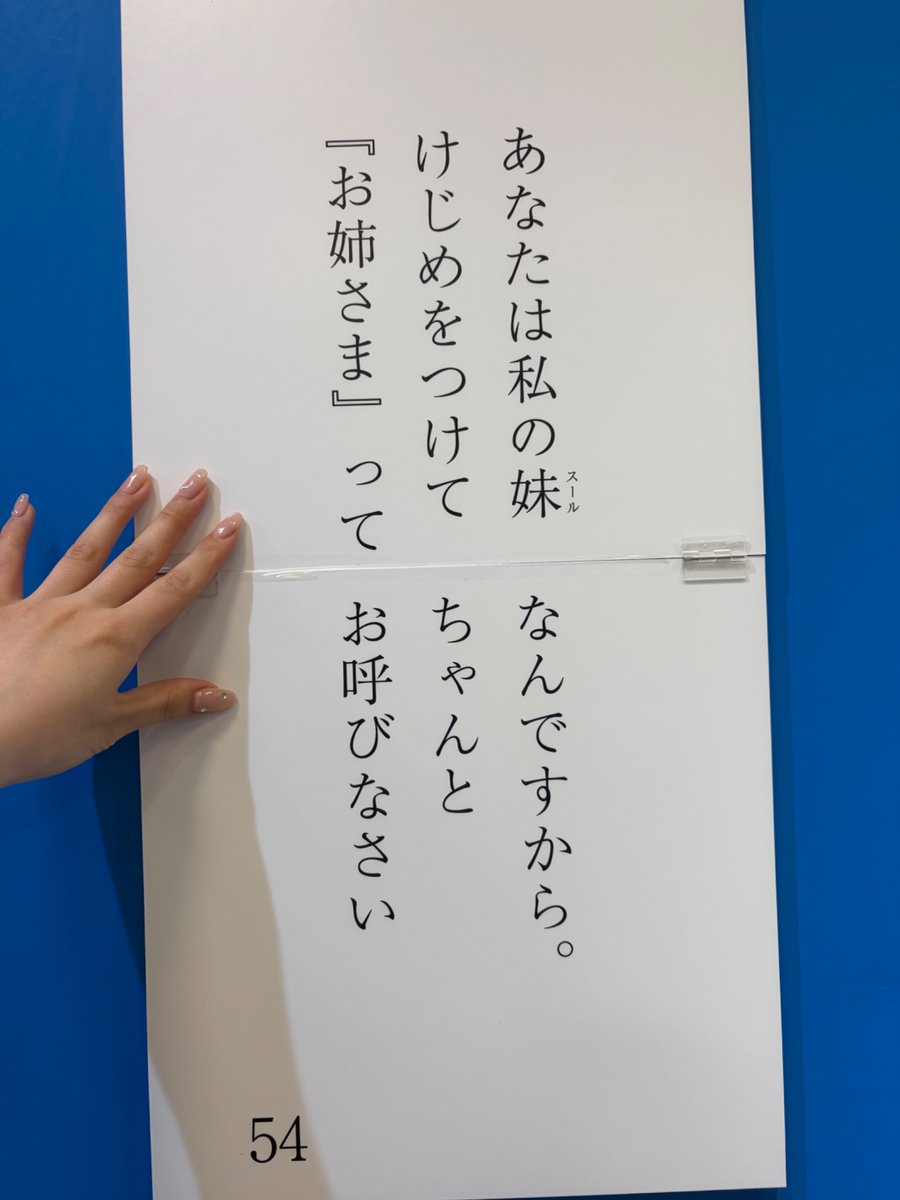 あなたは私の妹なんですから。
スール
けじめをつけてちゃんと
『お姉さま』ってお呼びなさい
54